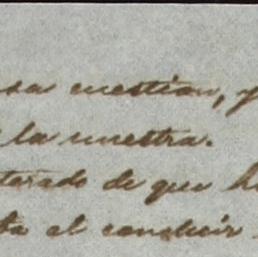 sa cuestion, y
la nuestra.
terado de que h
ta al conducir